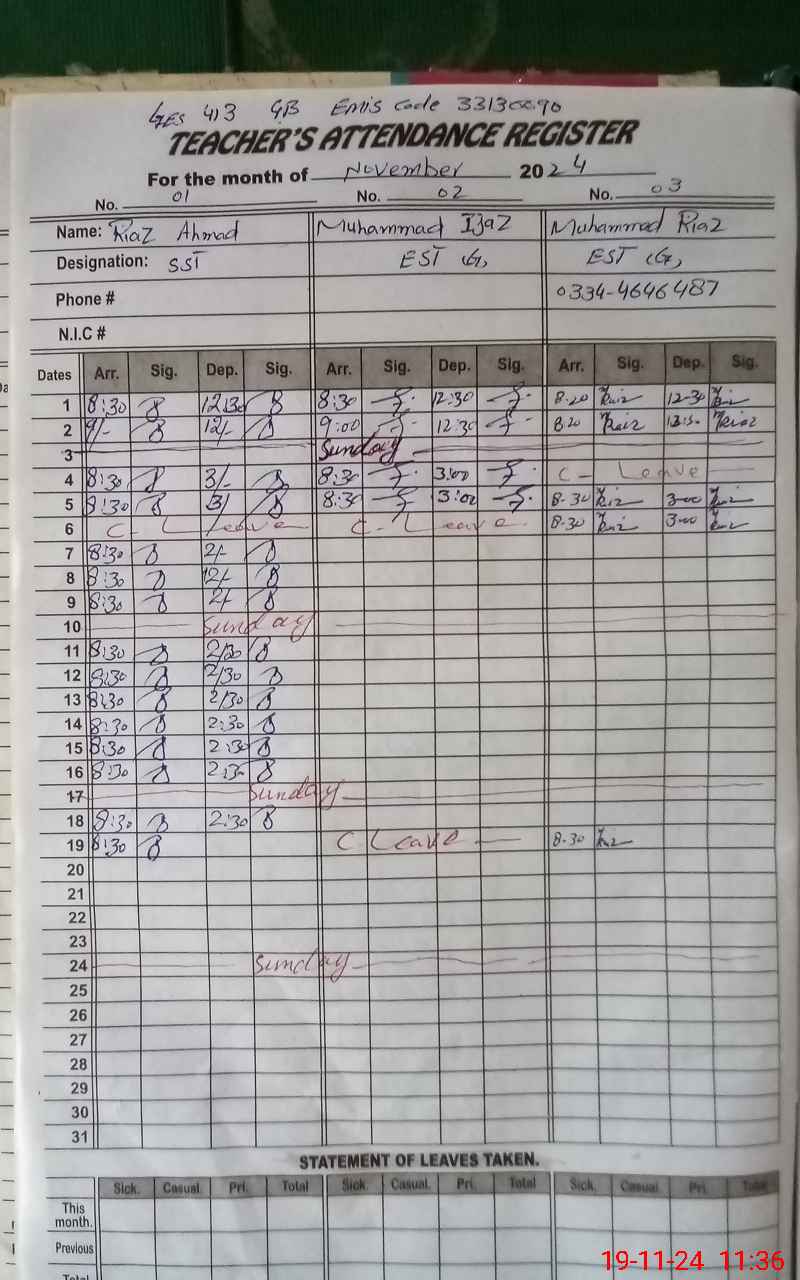 GES 413 GB Emis Code
TEACHER'S ATTENDANCE REGISTER
For the month of November 2024
No. 01 No. 02 No. 03
Name: Riaz Ahmad Muhammad Ijaz Muhammad Riaz
Designation: SST EST (G) EST (G)
Phone # 0334-4646487
N.I.C #
Dates Arr. Sig. Dep. Sig. Arr. Sig. Dep. Sig. Arr. Sig. Dep. Sig.
1 8:30 12:30 8:30 12:30 8.20 Riaz 12-30
2 9/- 12/- 9:00 12:30 820 Riaz Riaz
3 Sunday
4 8:30 3/- 8:30 3:00 C - Leave
5 8:30 3/ 8:30 3:00 8-30 3-00
6 C. Leave C. Leave 8-30 3-00
7 8:30 2/-
8 8:30 12/-
9 8:30 2/-
10 Sunday
11 8:30 2/30
12 8:30 2/30
13 8:30 2/30
14 8:30 2:30
15 8:30 2:30
16 8:30 2:30
17 Sunday
18 8:30 2:30
19 8:30 C Leave 8-30
20
21
22
23
24 Sunday
25
26
27
28
29
30
31
STATEMENT OF LEAVES TAKEN.
Sick. Casual. Pri. Total Sick. Casual. Pri. Total Sick. Casual. Pri. Total
This
month.
Previous
Total
19-11-24 11:36